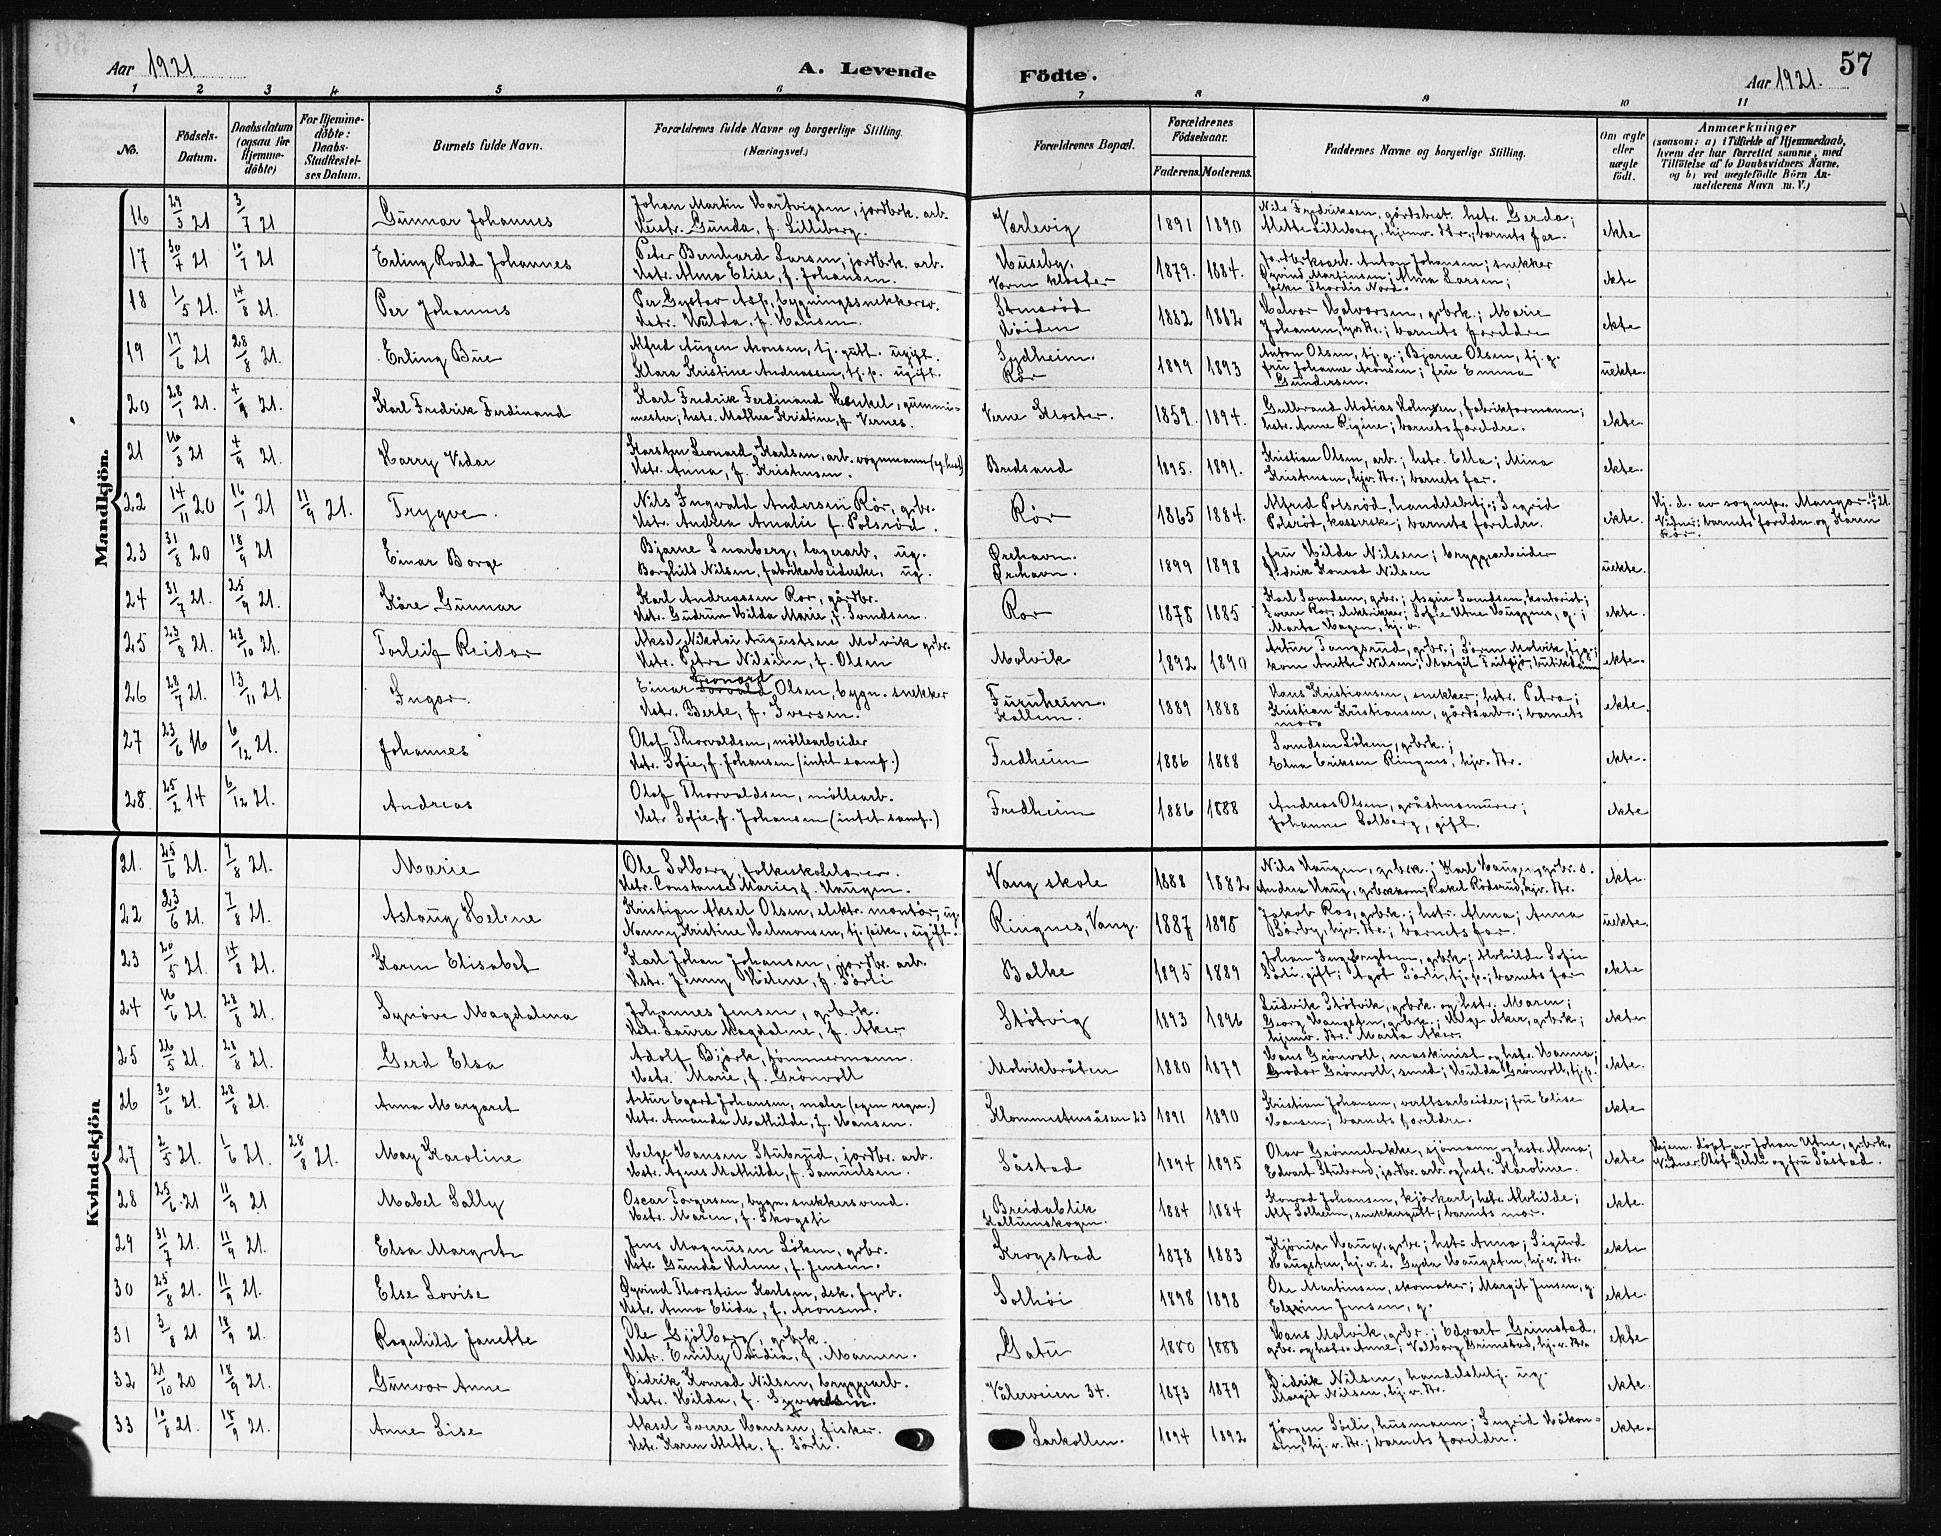 Aar 1921
A. Levende
Födte.
Aar 1921.
57
1 2 3 4 5 6 7 8 9 10 11
No.
Födsels-Datum.
Daabsdatum (ogsaa for Hjemme-döbte)
For Hjemme-döbte: Daabs-Stadfæstel-ses Datum.
Barnets fulde Navn.
Forældrenes fulde Navne og borgerlige Stilling.
(Næringsvei.)
Forældrenes Bopæl.
Forældrenes Födselsaar.
Faderens. Moderens.
Faddernes Navne og borgerlige Stilling.
Om ægte eller uægte födt.
Anmærkninger
(saasom: a) i Tilfælde af Hjemmedaab,
hvem der har forrettet samme, med
Tilföielse af to Daabsvidners Navne,
og b) ved uægtefödte Börn An-
melderens Navn m. V.)
Mandkjön.
16 29/3 21 3/7 21 Gunnar Johannes
Johan Martin Hartvigsen, jordbrk. arb.
Hustr. Gunda, f. Lilleberg.
Værlevig 1891 1890
Nils Fredriksen, gårdsbest. hstr. Gerda;
Mette Lilleberg, hjemv. dtr.; barnets far. ekte
17 30/4 21 10/7 21 Erling Roald Johannes
Peter Bernhard Larsen, jordbrk. arb.
Hstr. Alma Elise, f. Johansen.
Huseby, Værne kloster 1879. 1884.
Jordbrksarb. Anton Johansen; snekker
Øyvind Martinsen; Alma Larsen;
Thordis Nord. ekte
18 1/5 21. 14/8 21. Per Johannes
Per Gustav Asp, bygningssnekkersv.
Hstr. Hulda, f. Hansen.
Stensrød Höiden 1882 1882
Halvor Halvorsen, grbrk.; Marie
Johansen, hjv. dtr.; barnets foreldre ekte
19 17/6 21 28/8 21. Erling Büe
Alfred Augen Aronsen, tj. gutt. ugift.
Klara Kristine Andreassen, tj. p. ugift.
Sydheim. Rör 1899 1893
Anton Olsen, tj. g.; Bjarne Olsen, tj. g.
frü Johanne Aronsen; frü Emma
Gundersen. uekte.
20 28/1 21. 4/9 21. Karl Fredrik Ferdinand
Karl Fredrik Ferdinand Henkel, gummi-
mester; hstr. Mathea Kristine, f. Vernes.
Verne Kloster. 1859. 1894.
Gulbrand Matias Holmsen, fabrikformann;
hstr. Anne Rigine; barnets foreldre. ekte
21 16/3 21 4/9 21. Harry Vidar
Karsten Leonard Karlsen, arb. vognmann (eg. hest)
Hstr. Anna, f. Kristensen.
Bredsand 1895. 1891.
Kristian Olsen, arb.; hstr. Ella; Mina
Kristensen, hjv. dtr.; barnets far. ekte.
22 14/11 20 16/1 21 11/9 21. Trygve.
Nils Ingvald Andersen Rör, grbr.
Hstr. Andrea Amalie f. Polsröd.
Rör 1865 1884.
Alfred Polsröd, handelsbetj.; Ingrid
Polsröd, kasserske; barnets foreldre. ekte.
Hj. d. av sognepr. Mangor 16/1 21.
Vidner: barnets foreldre og Karen Rör.
23 31/8 20 18/9 21 Einar Borge
Bjarne Snarberg, lagerarb, ug.
Borghild Nilsen, fabrikarbeiderske, ug.
Ørehavn. Ørehavn. 1899 1898
frü Hilda Nilsen; bryggearbeider
Didrik Konrad Nilsen uekte.
24 31/7 21. 25/9 21. Kåre Gunnar
Karl Andreassen Rør, gårdbr.
Hstr. Gudrun Hilda Marie, f. Svendsen.
Rør 1878 1885
Karl Svendsen, grbr.; Asgeir Svendsen, kontorist;
Sverre Rør, elektriker; Sofie Utne Huggenes, g.;
Marta Hagen, hj. v. ekte.
25 23/8 21. 23/10 21. Torleif Reidar
Aksel Nikolai Augustsen Molvik grbr.
Hstr. Petra Nilsine, f. Olsen
Molvik 1892 1890
Artur Tangsrud, grbr.; Sören Molvik, tjg.;
kone Anette Nilsen; Margit Fritzö, butikdame ekte.
26 28/7 21. 13/11 21. Ingar.
Einar Leonard Torvald Olsen, bygn. snekker
Hstr. Berte, f. Iversen.
Furuheim. Kallum. 1889 1888
Hans Kristiansen, snekker; hstr. Petra;
Kristian Kristiansen, gårdsarb.; barnets
mor. ekte.
27 23/6 16 6/12 21. Johannes
Olaf Thorvaldsen, möllearbeider
Hstr. Sofie, f. Johansen (intet samf.)
Fredheim 1886 1888
Svendsen Löken, grbrk.;
Elna Eriksen Ringnes, hjv. dtr. ekte.
28. 25/2 14 6/12 21. Andreas
Olaf Thorvaldsen, möllearb.
Hstr. Sofie, f. Johansen (intet samf.)
Fredheim 1886 1888
Andreas Olsen, gråstensmurer;
Johanne Solberg, gift. ekte
Kvindekjön
21. 25/6 21. 7/8 21. Marie
Ole Solberg, folkeskolelærer.
Hstr. Constanse Marie, f. Haugen.
Vang skole 1888 1882
Nils Haugen, grbrk.; Karl Haugen, grbr. s.
Andrea Haug, grbrkkone; Rakel Rödsrud, hjv. dtr. ekte.
22 23/6 21. 7/8 21. Aslaug Helene
Kristian Aksel Olsen, elektr. montör, ug.
Nanny Kristine Helmersen, tj. pike, ugift.
Ringnes, Vang. 1887 1895
Jakob Ros, grbrk.; hstr. Alma; Anna
Bårby, hjv. dtr.; barnets far. uekte.
23 20/5 21. 14/8 21. Karen Elisabet
Karl Johan Johansen, jordbr. arb.
Hstr. Jenny Helene, f. Sörli
Balke 1895 1889
Johan Ingebrigtsen, grbrk; Alvhilde Sofie
Sörli, gift; Agot Sörli, tj. p.; barnets far ekte
24 16/6 21. 28/8 21. Synöve Magdalena
Johannes Jensen, grbrk.
Hstr. Laura Magdalene, f. Aker
Stötvig 1893 1896
Ludvik Stötvik, grbrk. og hstr. Maren;
Georg Haugsten, grbrk.; Helge Aker, grbrk;
hjemv. dtr. Marta Aker. ekte
25 26/5 21. 28/8 21. Gerd Elsa
Adolf Björk, tömmermann.
Hstr. Marie, f. Grönvoll
Molvikbråten 1880 1879
Hans Grönvoll, maskinist og hstr. Hanna;
Gvdor Grönvoll, smed; Hulda Grönvoll, tj. p. ekte.
26 30/6 21. 28/8 21. Anna Margaret
Artur Egard Johansen, maler (egen regn.)
Hstr. Amanda Mathilde, f. Hansen.
Klommestensåsen 23 1891 1890
Kristian Johansen, verftsarbeider; frü Elise
Hansen; barnets foreldre. ekte
27 2/5 21. 1/6 21. 28/8 21. May Karoline
Helge Hansen Stubrud, jordbr. arb.
Hstr. Agnes Mathilde, f. Samuelsen.
Såstad 1894 1895
Olav Grönnebakke, sjömann og hstr. Alma;
Edvart Stubrud, jordbr. arb. og hstr. Karoline. ekte
Hjem. döpt av Johan Utne, grbrk.
Vidner: Olaf Dehli og frü Såstad.
28 25/6 21 11/9 21 Mabel Sally
Oscar Torgersen, bygn. snekkersvend.
Hstr. Maren, f. Skogsti
Breidablik Kallumskogen. 1884 1884
Konrad Johansen, kjörkarl; hstr. Alvhilde;
Alf Solheim, snekkergutt; barnets mor. ekte.
29 31/7 21. 11/9 21. Elsa Margrete
Jens Magnusen Löken, grbr.
Hstr. Gunda Helene, f. Jensen.
Krogstad 1878 1883
Kjönik Haug, grbr.; hstr. Anna; Sigurd
Haugsten, hj. v. s. Gyda Haugsten, hj. v. dtr. ekte
30 25/8 21. 11/9 21. Else Lovise
Øyvind Thorstein Karlsen, dek. fyrb.
Hstr. Anna Elida, f. Aronsen.
Solhöi 1898 1898
Ole Martinsen, skomaker; Margit Jensen, g.
Jensen, g. ekte.
31 3/8 21 18/9 21. Ragnhild Janette
Ole Gjölberg, grbrk.
Hstr. Emily Ovidia, f. Mamen.
Gatu 1880 1888
Hans Molvik, grbr.; Edvart Grimstad,
grbr. og hstr. Anne; Valborg Grimstad, hj. v. dtr. ekte
32 21/10 20 18/9 21. Gunvor Anne
Didrik Konrad Nilsen, bryggearb.
Hstr. Hilda, f.
Vålerveien 34. 1873 1879
Didrik Nilsen, handelsbetj. ug.
Margit Nilsen, hj. v. dtr. ekte.
33 10/8 21. 18/9 21. Anne Lise
Aksel Sverre Hansen, fisker.
Hstr. Karen Mette, f. Sörli.
Larkollen. 1894 1892
Jörgen Sörli, husmann; Ingrid Håkon-
sen, hj. v. dtr.; barnets foreldre. ekte